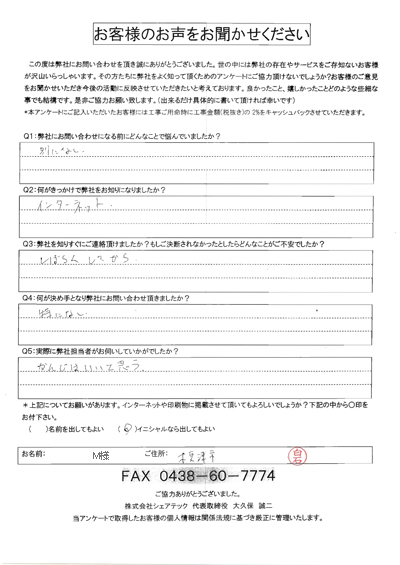 お客様のお声をお聞かせください
この度は弊社にお問い合わせを頂き誠にありがとうございました。世の中には弊社の存在やサービスをご存知ないお客様
が沢山いらっしゃいます。その方たちに弊社をよく知って頂くためのアンケートにご協力頂けないでしょうか?お客様のご意見
をお聞かせいただき今後の活動に反映させていただきたいと考えております。良かったこと、嬉しかったことどのような些細な
事でも結構です。是非ご協力お願い致します。(出来るだけ具体的に書いて頂ければ幸いです)
*本アンケートにご記入いただいたお客様には工事ご用命時に工事金額(税抜き)の 2%をキャッシュバックさせていただきます。
Q1:弊社にお問い合わせになる前にどんなことで悩んでいましたか?
別になし.
Q2:何がきっかけで弊社をお知りになりましたか?
インターネット.
Q3:弊社を知りすぐにご連絡頂けましたか?もしご決断されなかったとしたらどんなことがご不安でしたか?
しばらくしてから
Q4:何が決め手となり弊社にお問い合わせ頂きましたか?
特になし.
Q5:実際に弊社担当者がお伺いしていかがでしたか?
かんじはいいと思う.
*上記についてお願いがあります。インターネットや印刷物に掲載させて頂いてもよろしいでしょうか?下記の中から〇印を
お付下さい。
( )名前を出してもよい ( )イニシャルなら出してもよい
お名前: M様 ご住所: 木更津市 白石
FAX 0438-60-7774
ご協力ありがとうございました。
株式会社シェアテック 代表取締役 大久保 誠二
当アンケートで取得したお客様の個人情報は関係法規に基づき厳正に管理いたします。